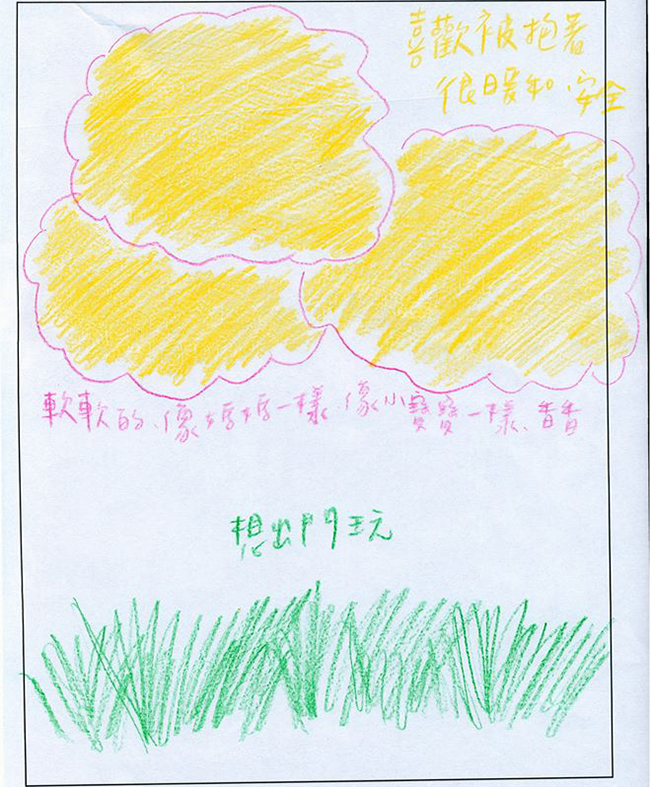 喜歡被抱著
很暖和、安全
軟軟的、像媽媽一樣、像小寶寶一樣、香香
想出門玩